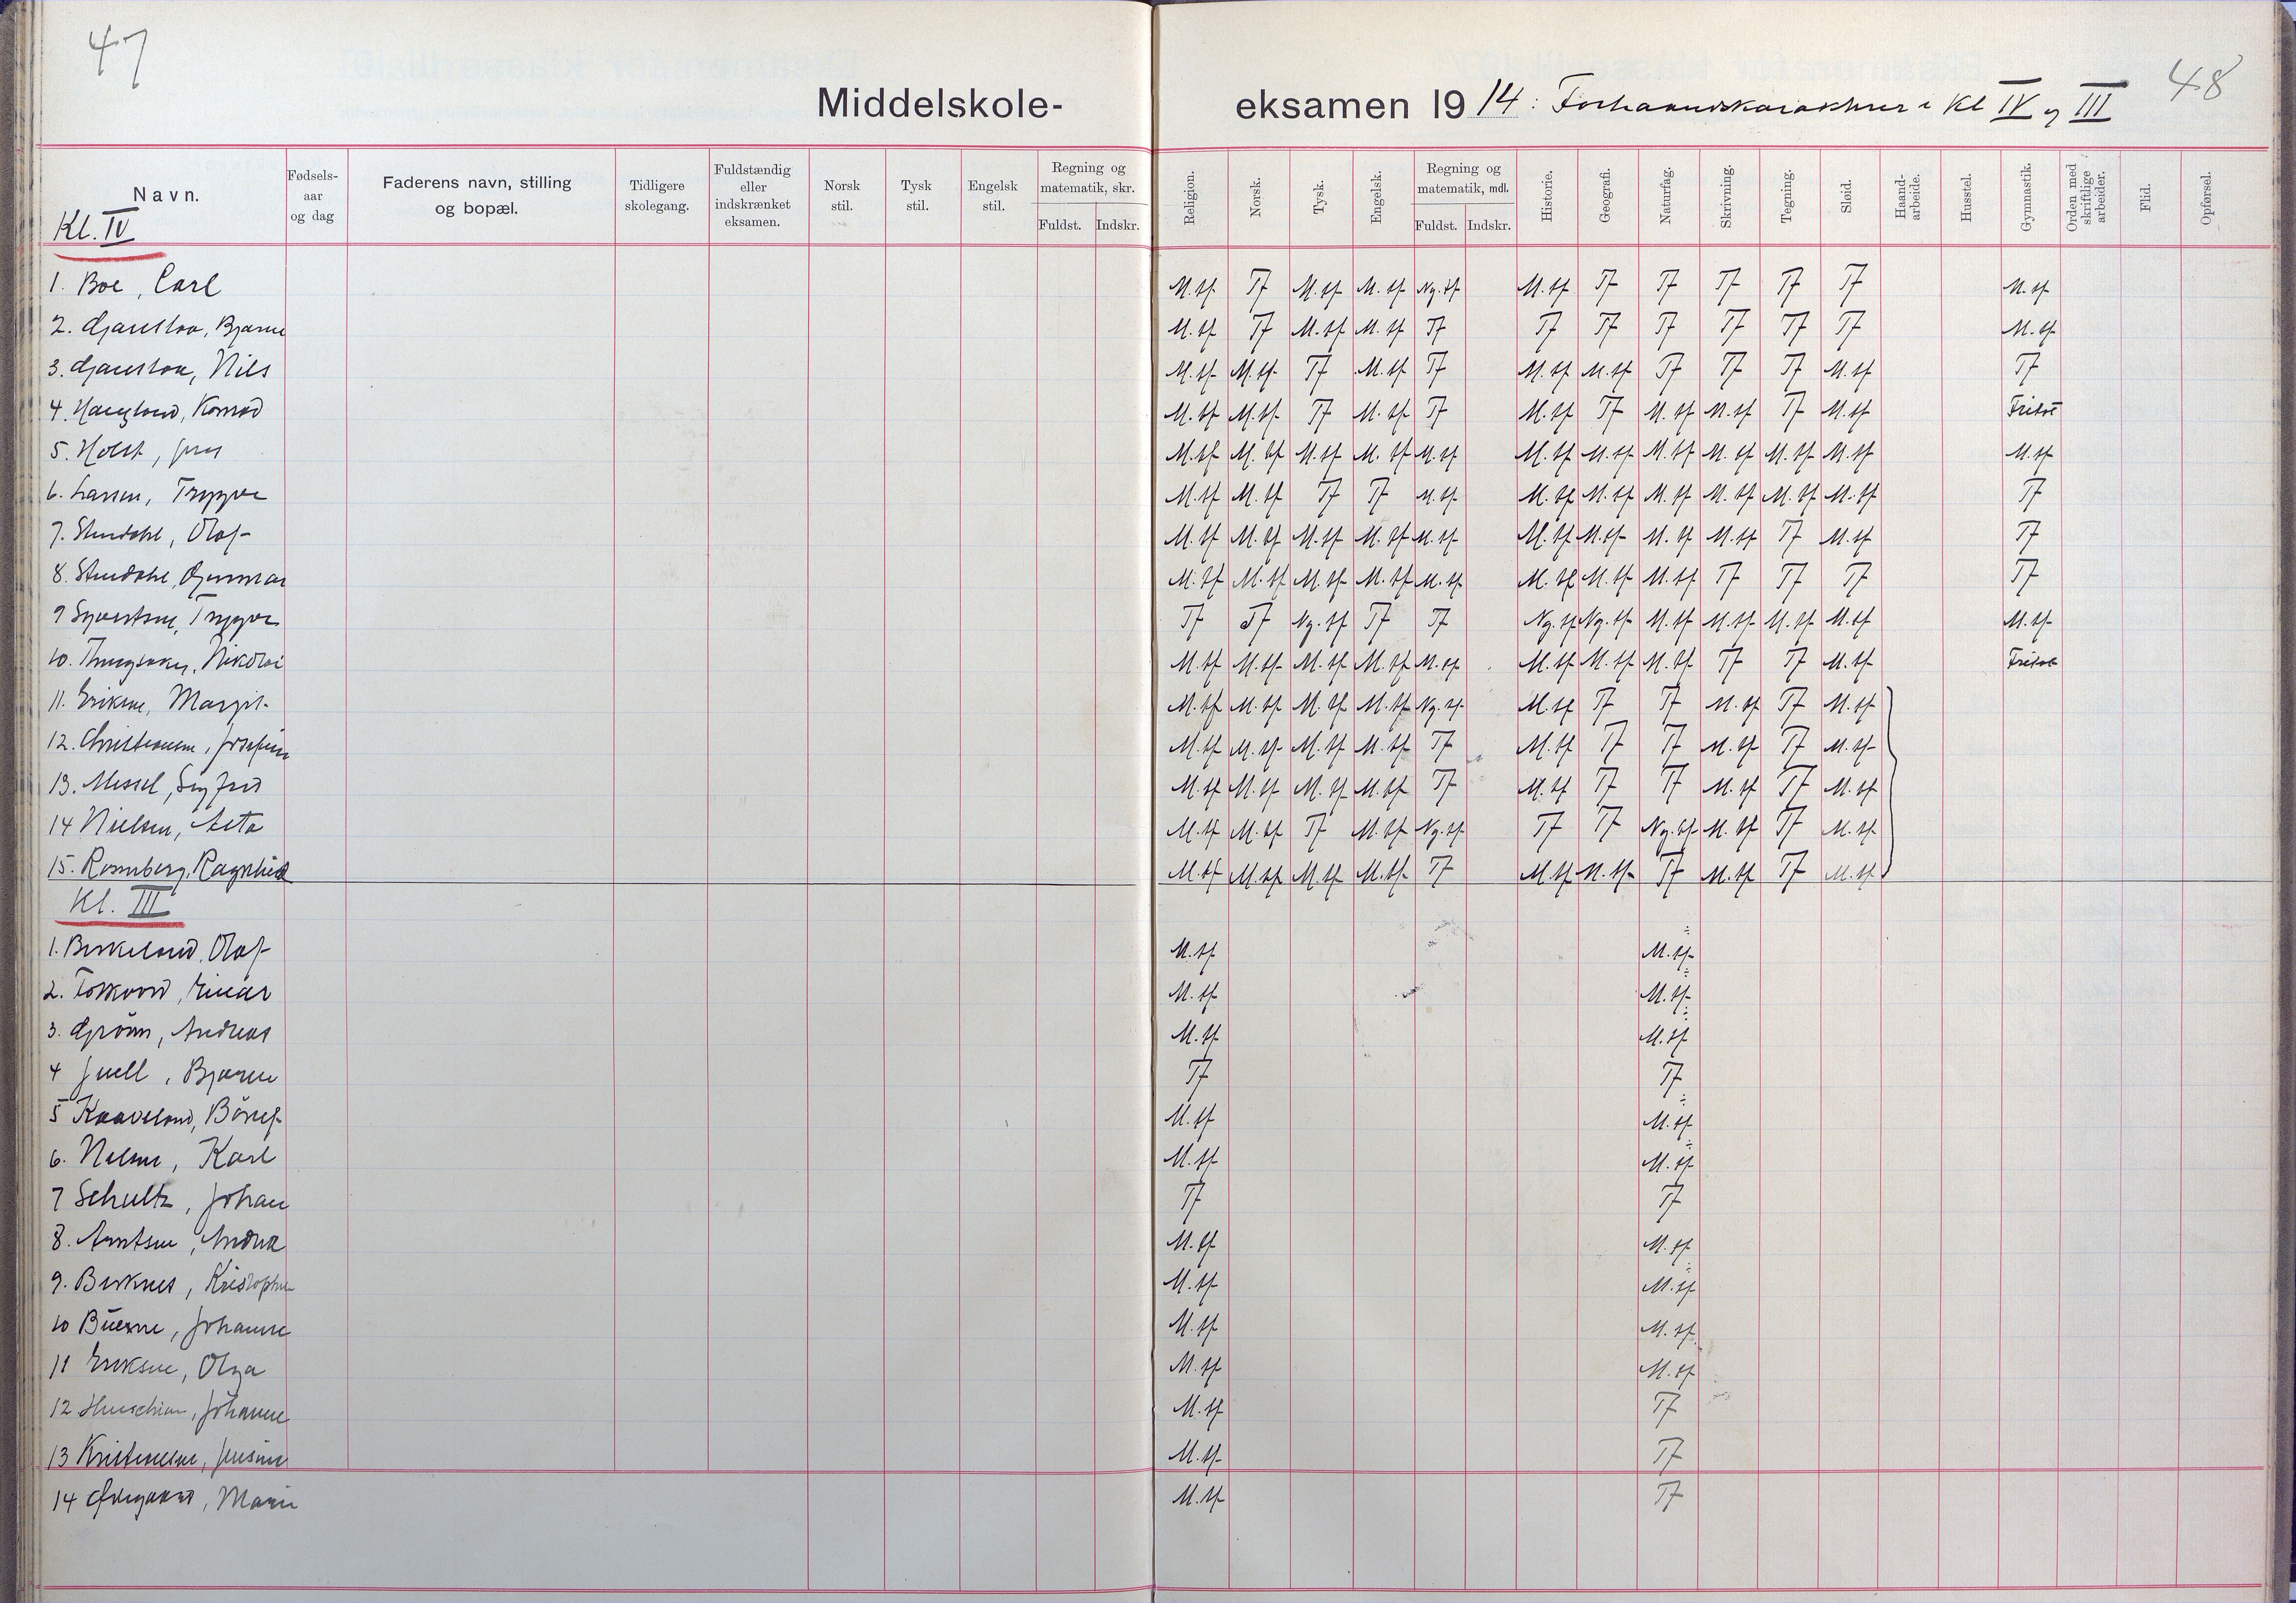 47
48
Middelskole-eksamen 1914: Forhaandskarakterer i Kl IV og III
Navn. Fødsels-aar og dag Faderens navn, stilling og bopæl. Tidligere skolegang. Fuldstændig eller indskrænket eksamen. Norsk stil. Tysk stil. Engelsk stil. Regning og matematik, skr. Fuldst. Indskr. Religion. Norsk. Tysk. Engelsk. Regning og matematik, mdl. Fuldst. Indskr. Historie. Geografi. Naturfag. Skrivning. Tegning. Sløid. Haand-arbeide. Husstel. Gymnastik. Orden med skriftlige arbeider. Flid. Opførsel.
Kl. IV
1. Boe, Carl M.tf T M.tf M.tf Ng.tf M.tf Tf Tf Tf Tf Tf M.tf
2. Bjarne M.tf Tf M.tf M.tf Tf Tf Tf Tf Tf Tf Tf M.tf
3. Nils M.tf M.tf Tf M.tf Tf M.tf M.tf Tf Tf Tf M.tf Tf
4. Haugland, Konrad M.tf M.tf Tf M.tf Tf M.tf Tf M.tf M.tf Tf M.tf Fritat
5. Holst, Jens M.tf M.tf M.tf M.tf M.tf M.tf M.tf M.tf M.tf M.tf M.tf M.tf
6. Larsen, Trygve M.tf M.tf Tf Tf M.tf M.tf M.tf M.tf M.tf M.tf M.tf Tf
7. Stendahl, Olaf M.tf M.tf M.tf M.tf M.tf M.tf M.tf M.tf M.tf Tf M.tf Tf
8. Stendahl, Gunnar M.tf M.tf M.tf M.tf M.tf M.tf M.tf M.tf Tf Tf Tf Tf
9 Syvertsen, Trygve Tf Tf Ng.tf Tf Tf Ng.tf Ng.tf M.tf M.tf M.tf M.tf M.tf
10. Nikolai M.tf M.tf M.tf M.tf M.tf M.tf M.tf M.tf Tf Tf M.tf Fritat
11. Eriksen, Margit M.tf M.tf M.tf M.tf Ng.tf M.tf Tf Tf M.tf Tf M.tf
12. Christensen, Josefine M.tf M.tf M.tf M.tf Tf M.tf Tf Tf M.tf Tf M.tf
13. Messel, Sigfrid M.tf M.tf M.tf M.tf Tf M.tf Tf Tf M.tf Tf M.tf
14 Nielsen, Asta M.tf M.tf Tf M.tf Ng.tf Tf Tf Ng.tf M.tf Tf M.tf
15. Rosenberg, Ragnhild M.tf M.tf M.tf M.tf Tf M.tf M.tf Tf M.tf Tf M.tf
Kl. III
1. Birkeland, Olaf M.tf M.tf ÷
2. Einar M.tf M.tf ÷
3. Grönn, Andreas M.tf M.tf ÷
4 Juell, Bjarne Tf Tf
5 Kaaveland, M.tf M.tf ÷
6. Nielsen, Karl M.tf M.tf ÷
7 Schultz, Johan Tf Tf
8. Arntsen, Andrea M.tf M.tf
9. Birknes, M.tf M.tf ÷
10 Johanne M.tf M.tf
11 Eriksen, Olga M.tf M.tf
12 Johanne M.tf Tf
13 Kristensen, Jensine M.tf Tf
14 Marie M.tf Tf